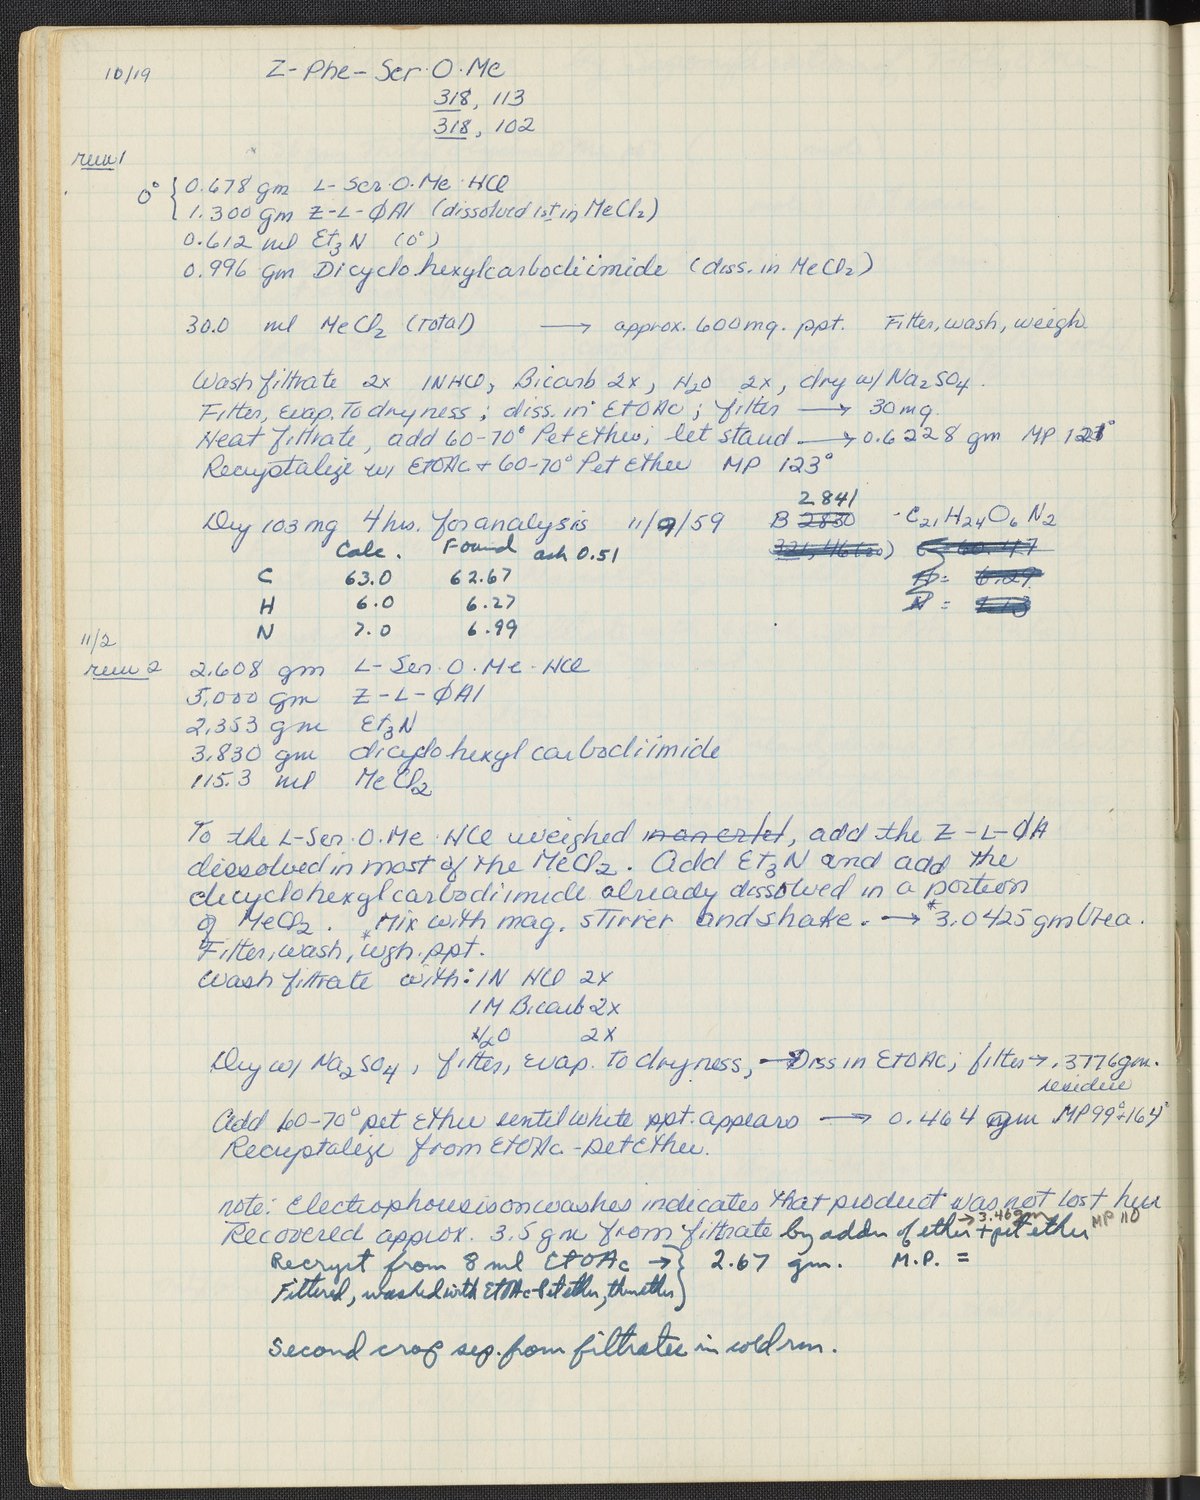 10/19 Z-Phe-Ser·O·Me
318, 113
318, 102
run 1
0° { 0.678 gm L-Ser·O·Me·HCl
1.300 gm Z-L-ØAl (dissolved 1st in MeCl2)
0.612 ml Et3N (0°)
0.996 gm Dicyclohexylcarbodiimide (diss. in MeCl2)
30.0 ml MeCl2 (Total) → approx. 600 mg. ppt. Filter, wash, weigh
Wash filtrate 2x 1N HCl, Bicarb 2x, H2O 2x, dry w/ Na2SO4.
Filter, evap. to dryness; diss. in EtOAc; filter → 30 mg.
Heat filtrate, add 60-70° Pet Ether; let stand → 0.6228 gm MP 121°
Recrystalize w/ EtOAc + 60-70° Pet Ether MP 123°
2841
Dry 103 mg 4 hrs. for analysis 11/9/59 B 2830 - C21H24O6N2
Calc. Found ash 0.51
C 63.0 62.67
H 6.0 6.27
N 7.0 6.99
11/2
run 2 2.608 gm L-Ser·O·Me·HCl
5.000 gm Z-L-ØAl
2.353 gm Et3N
3.830 gm dicyclohexyl carbodiimide
115.3 ml MeCl2
To the L-Ser·O·Me·HCl weighed, add the Z-L-ØA
dissolved in most of the MeCl2. Add Et3N and add the
dicyclohexylcarbodiimide already dissolved in a portion
of MeCl2. Mix with mag. stirrer and shake. → *3.0425 gm Urea.
Filter, wash, *wgh. ppt.
Wash filtrate with: 1N HCl 2x
1M Bicarb 2x
H2O 2x
Dry w/ Na2SO4, filter, evap. to dryness, → Diss in EtOAc; filter → .3776 gm.
residue
Add 60-70° pet ether until white ppt. appears → 0.464 gm MP 99°+164°
Recrystalize from EtOAc - Pet Ether.
note: Electrophoresis on washes indicates that product was not lost here
Recovered approx. 3.5 gm from filtrate by addn of ether + pet ether → 3.46 gm MP 110
Recryst from 8 ml EtOAc → } 2.67 gm. M.P. =
Filtered, washed with EtOAc-Pet ether, then ether
Second crop sep. from filtrates in cold rm.